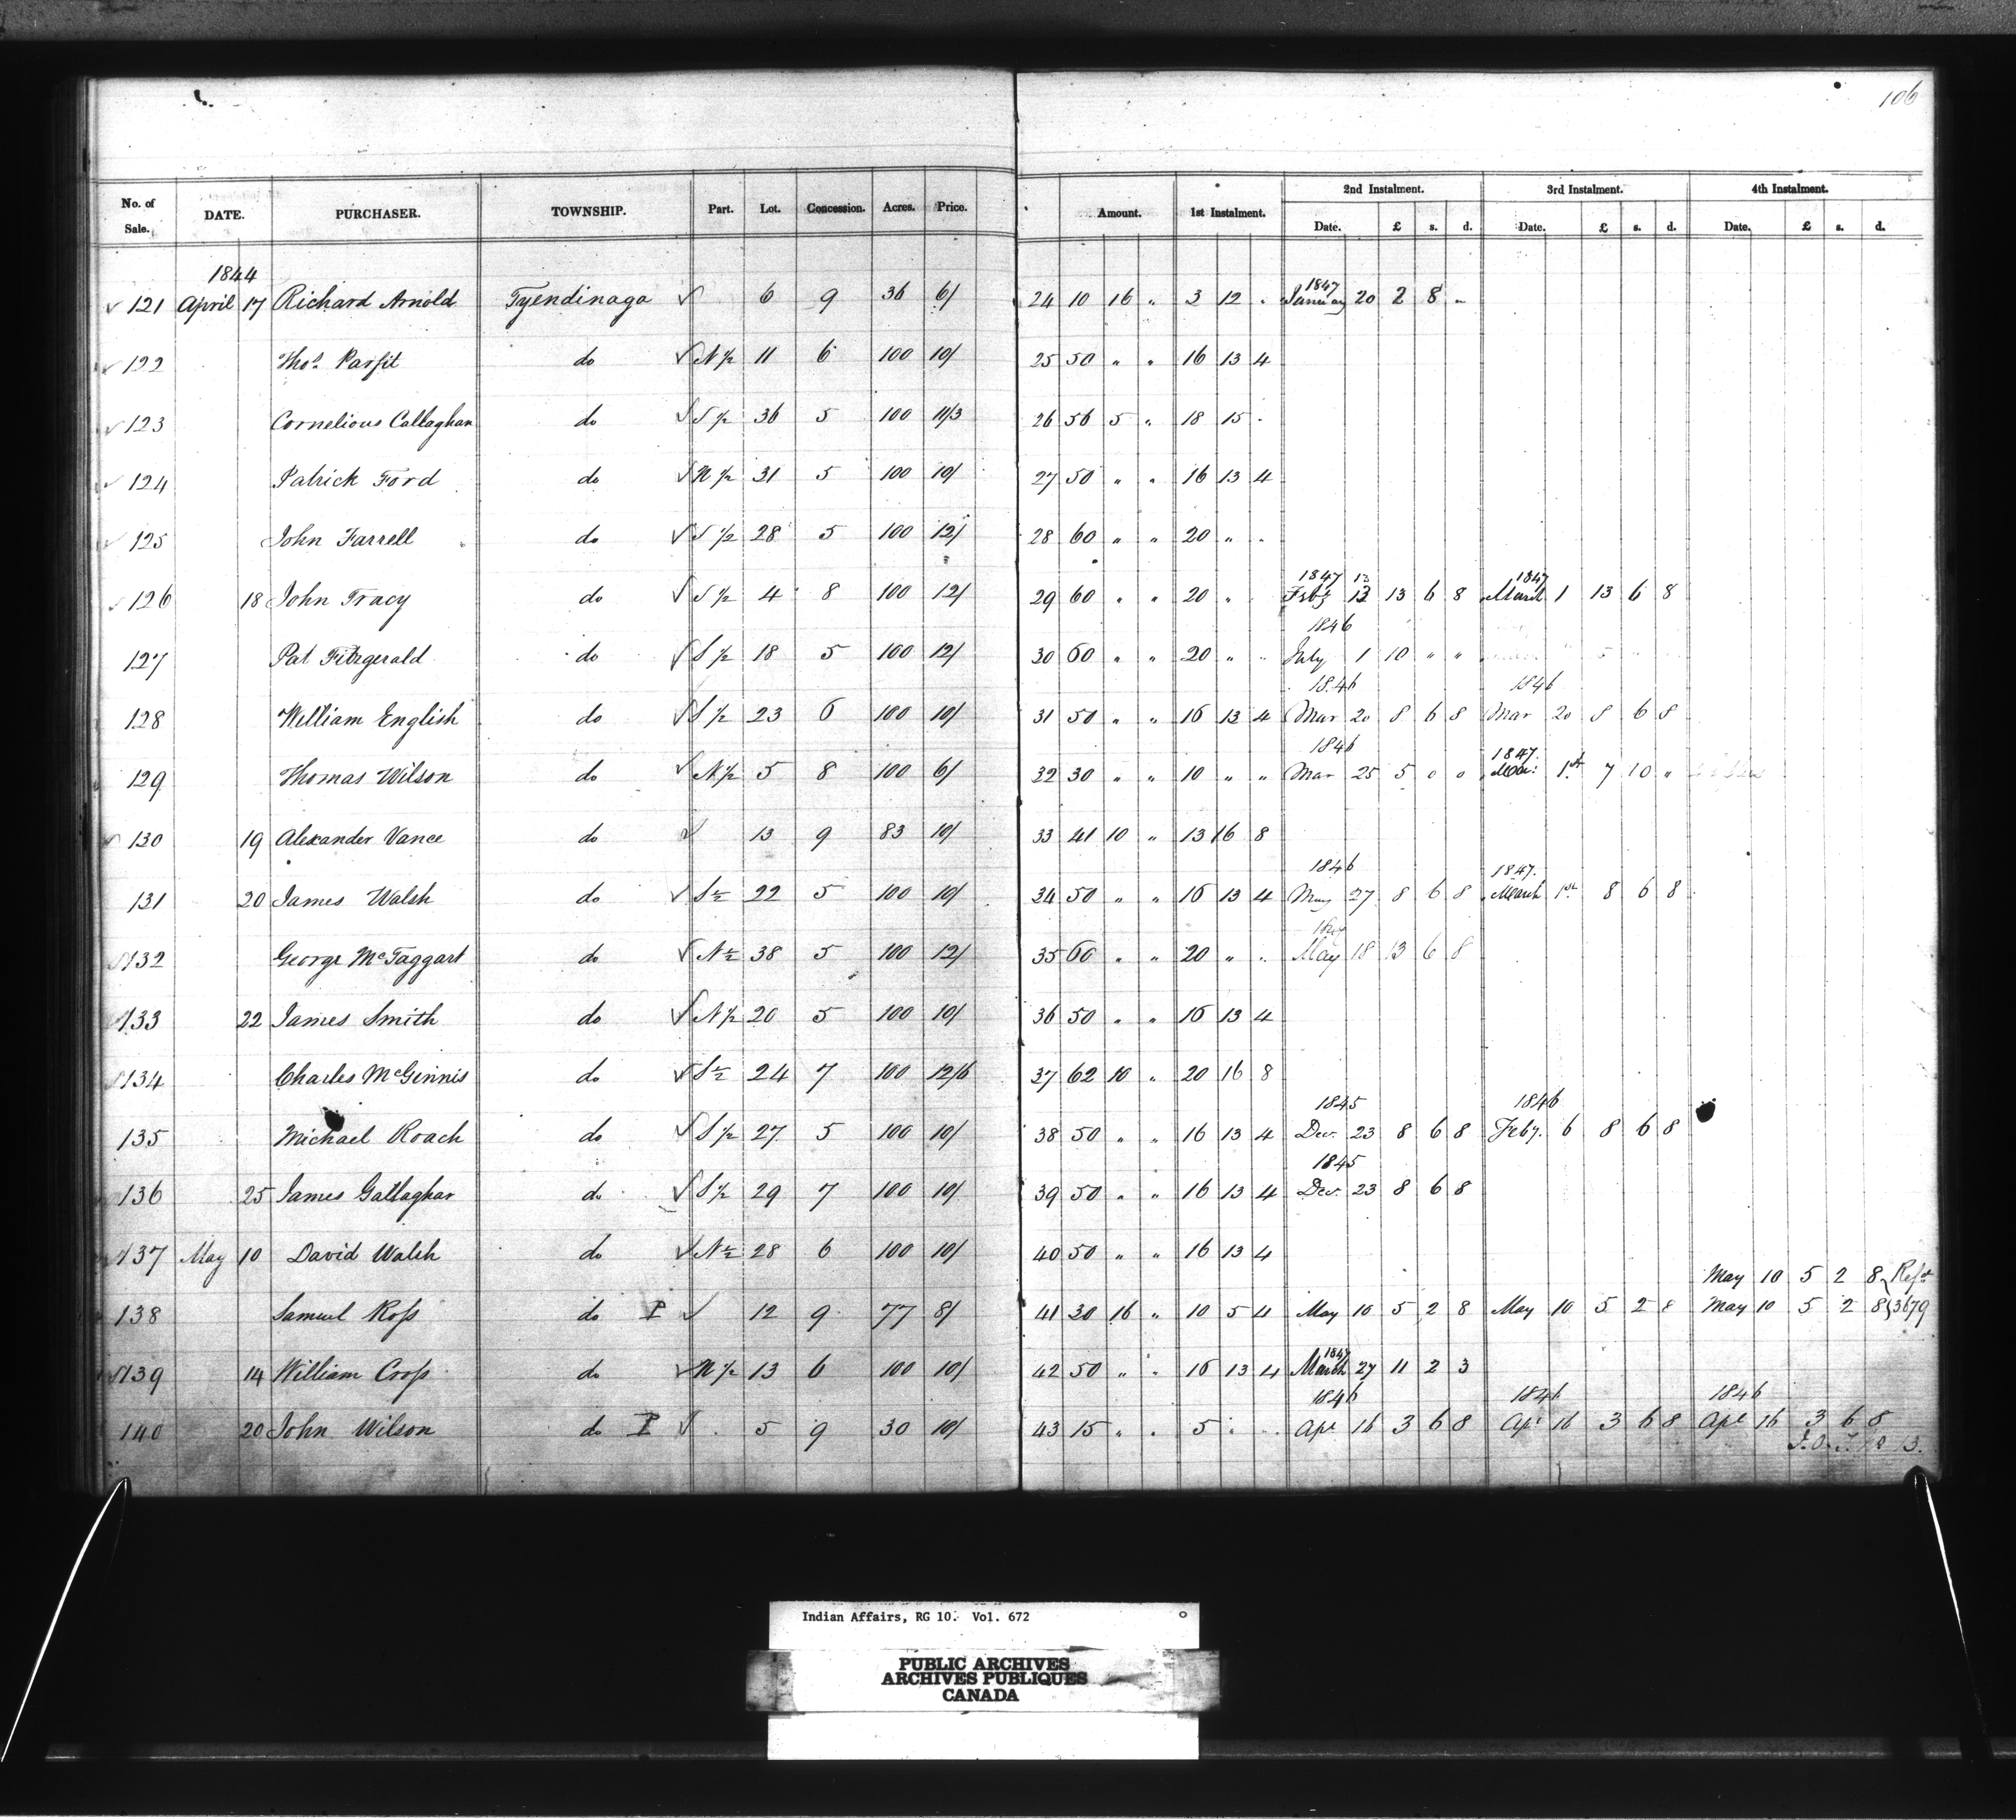 106
No. of Sale. DATE. PURCHASER. TOWNSHIP. Part. Lot. Concession. Acres. Price. Amount. 1st Instalment. 2nd Instalment. 3rd Instalment. 4th Instalment.
Date. £ s. d. Date. £ s. d. Date. £ s. d.
1844 1847
✓ 121 April 17 Richard Arnold Tyendinaga ✓ 6 9 36 6/ 24 10 16 " 3 12 " January 20 2 8 "
✓ 122 Thos. Parfit do ✓ N ½ 11 6 100 10/ 25 50 " " 16 13 4
✓ 123 Cornelious Callaghan do ✓ S ½ 36 5 100 11/3 26 56 5 " 18 15 "
✓ 124 Patrick Ford do ✓ N ½ 31 5 100 10/ 27 50 " " 16 13 4
✓ 125 John Farrell do ✓ S ½ 28 5 100 12/ 28 60 " " 20 " "
1847 13 1847
✓ 126 18 John Tracy do ✓ S ½ 4 8 100 12/ 29 60 " " 20 " Feby 13 13 6 8 March 1 13 6 8
1846
127 Pat Fitzgerald do ✓ S ½ 18 5 100 12/ 30 60 " " 20 " " July 1 10 " "
1846 1846
128 William English do ✓ S ½ 23 6 100 10/ 31 50 " " 16 13 4 Mar 20 8 6 8 Mar 20 8 6 8
1846 1847
129 Thomas Wilson do ✓ N ½ 5 8 100 6/ 32 30 " " 10 " " Mar 25 5 0 0 Mar: 1st 7 10 "
✓ 130 19 Alexander Vance do ✓ 13 9 83 10/ 33 41 10 " 13 16 8
1846 1847.
131 20 James Walsh do ✓ S ½ 22 5 100 10/ 34 50 " " 16 13 4 May 27 8 6 8 March 1st 8 6 8
✓ 132 George McTaggart do ✓ N ½ 38 5 100 12/ 35 60 " " 20 " " May 18 13 6 8
✓ 133 22 James Smith do ✓ N ½ 20 5 100 10/ 36 50 " " 16 13 4
✓ 134 Charles McGinnis do ✓ S ½ 24 7 100 12/6 37 62 10 " 20 16 8
1845 1846
135 Michael Roach do ✓ S ½ 27 5 100 10/ 38 50 " " 16 13 4 Dec. 23 8 6 8 Feby. 6 8 6 8
1845
136 25 James Gallaghar do ✓ S ½ 29 7 100 10/ 39 50 " " 16 13 4 Dec. 23 8 6 8
✓ 137 May 10 David Walsh do ✓ N ½ 28 6 100 10/ 40 50 " " 16 13 4
May 10 5 2 8
138 Samuel Ross do P ✓ 12 9 77 8/ 41 30 16 " 10 5 4 May 10 5 2 8 May 10 5 2 8 May 10 5 2 8 3679
1847
✓ 139 14 William Cross do ✓ N ½ 13 6 100 10/ 42 50 " " 16 13 4 March 27 11 2 3
1846 1846 1846
140 20 John Wilson do P ✓ 5 9 30 10/ 43 15 " " 5 " " Apl 16 3 6 8 Apl 16 3 6 8 Apl 16 3 6 8
Indian Affairs, RG 10. Vol. 672
PUBLIC ARCHIVES
ARCHIVES PUBLIQUES
CANADA